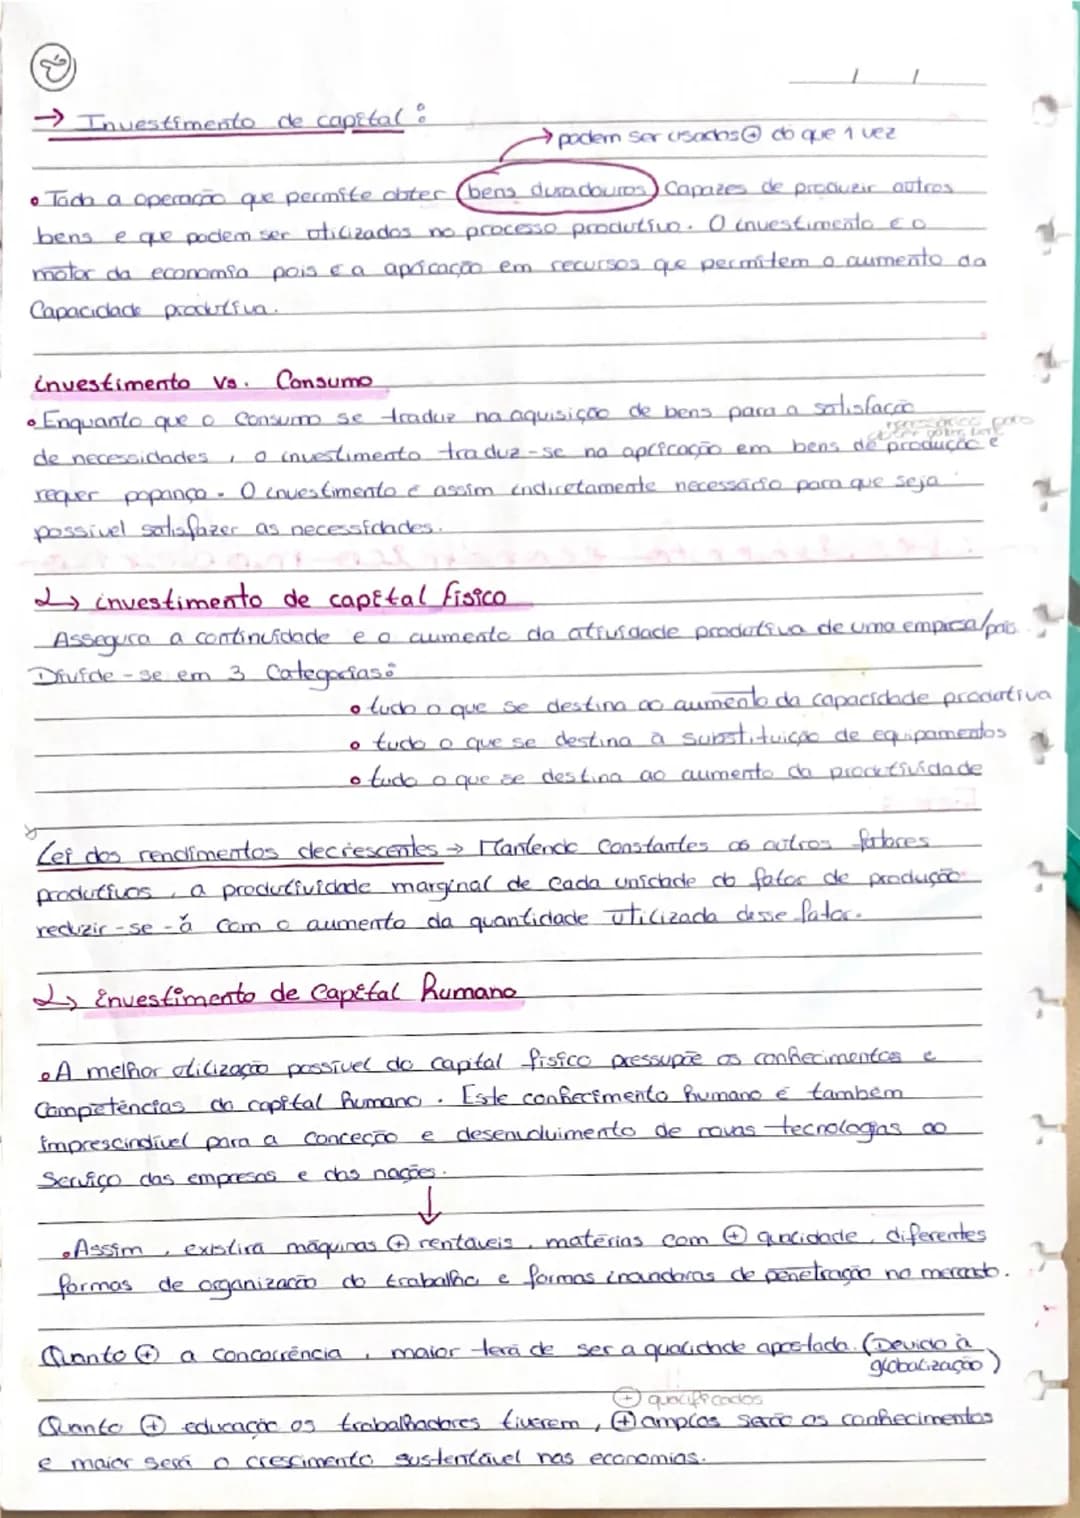 / /
→ Investimento de capital:
→ podem ser usados ⊕ do que 1 vez
• Toda a operação que permite obter (bens duradouros) Capazes de produzir outros
bens e que podem ser utilizados no processo produtivo. O investimento é o
motor da economia pois é a aplicação em recursos que permitem o aumento da
Capacidade produtiva.
investimento vs. Consumo
• Enquanto que o Consumo se traduz na aquisição de bens para a satisfação
necessários para
obter outros bens
de necessidades, o investimento traduz-se na aplicação em bens de produção e
requer popança. O investimento é assim indiretamente necessário para que seja
possivel satisfazer as necessidades.
↳ investimento de capital físico
Assegura a continuidade e o aumento da atividade produtiva de uma empresa/país.
Divide-se em 3 Categorias:
• tudo o que se destina ao aumento da capacidade produtiva
• tudo o que se destina à substituição de equipamentos
• tudo o que se destina ao aumento da produtividade
Lei dos rendimentos decrescentes → Mantendo Constantes os outros fatores
produtivos, a produtividade marginal de cada unidade do fator de produção
reduzir-se-á com o aumento da quantidade utilizada desse fator.
↳ investimento de Capital Humano
• A melhor utilização possível do capital físico pressupõe os conhecimentos e
Competências do capital humano. Este conhecimento humano é também
imprescindível para a conceção e desenvolvimento de novas tecnologias ao
Serviço das empresas e das nações.
↓
• Assim, existirá máquinas ⊕ rentáveis, matérias com ⊕ qualidade, diferentes
formas de organização do trabalho e formas inovadoras de penetração no mercado.
Quanto ⊕ a concorrência, maior terá de ser a qualidade apostada. (Devido à
globalização)
⊕ qualificados
Quanto ⊕ educação os trabalhadores tiverem, ⊕ amplos serão os conhecimentos
e maior será o crescimento sustentável nas economias.